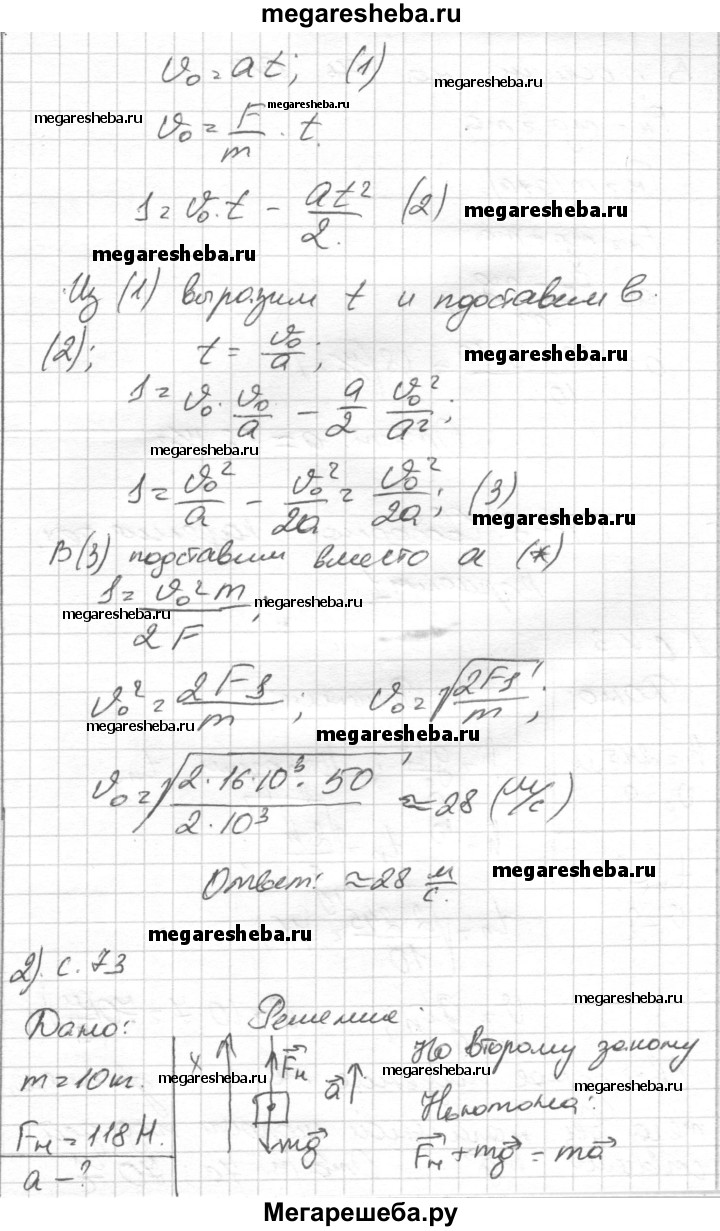 megaresheba.ru
υ₀ = at; (1)
megaresheba.ru
megaresheba.ru
megaresheba.ru
υ₀ = F/m · t.
1 = υ₀·t − at²/2. (2)
megaresheba.ru
megaresheba.ru
Из (1) выразим t и подставим в
(2); t = υ₀/a;
megaresheba.ru
1 = υ₀ · υ₀/a − a/2 υ₀²/a²;
megaresheba.ru
1 = υ₀²/a − υ₀²/2a = υ₀²/2a; (3)
megaresheba.ru
В (3) подставим вместо a (*)
1 = υ₀²m/2F;
megaresheba.ru
megaresheba.ru
υ₀² = 2F1/m; υ₀ = √(2F1/m);
megaresheba.ru
megaresheba.ru
υ₀ = √(2·16·10³·50/2·10³) ≈ 28 (м/с)
Ответ: ≈28 м/с.
megaresheba.ru
megaresheba.ru
2). с. 73
megaresheba.ru
Дано: Решение:
m = 10 кг. x F⃗н a⃗ По второму закону
megaresheba.ru
megaresheba.ru
Fн = 118 Н. mg⃗ Ньютона:
a − ? F⃗н + mg⃗ = ma⃗
megaresheba.ru
megaresheba.ru
Мегарешеба.ру